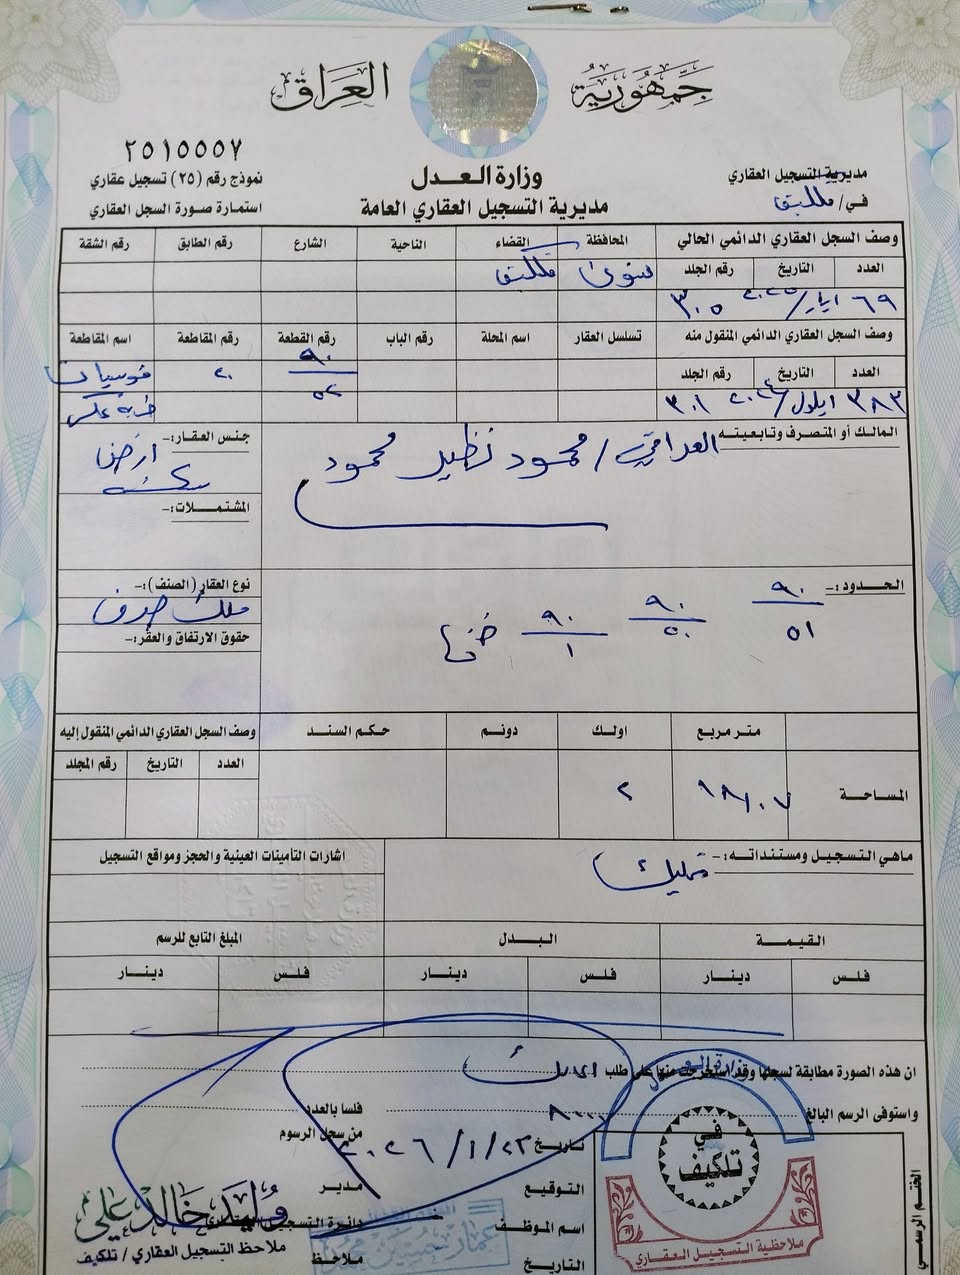 جمهورية العراق
٢٥١٥٥٥٧
وزارة العدل
مديرية التسجيل العقاري العامة
مديرية التسجيل العقاري
في / تلكيف
نموذج رقم (٢٥) تسجيل عقاري
استمارة صورة السجل العقاري
وصف السجل العقاري الدائمي الحالي المحافظة القضاء الناحية الشارع رقم الطابق رقم الشقة
العدد التاريخ رقم الجلد
نينوى تلكيف
٦٩ ايار/٢٠٢٥ ٣٠٥
وصف السجل العقاري الدائمي المنقول منه تسلسل العقار اسم المحلة رقم الباب رقم القطعة رقم المقاطعة اسم المقاطعة
العدد التاريخ رقم الجلد
٩٠/٥٢ ٢٠
٣٨٣ ايلول/٢٠٢٤ ٣٠١
المالك أو المتصرف وتابعيته:-
العراقي/ محمود نظير محمود
جنس العقار:-
ارض
سكنية
المشتملات:-
الحدود:-
٩٠/٥١ ٩٠/٥٠ ٩٠/١
نوع العقار (الصنف):-
ملك صرف
حقوق الارتفاق والعقر:-
متر مربع اولك دونم حكم السند وصف السجل العقاري الدائمي المنقول إليه
العدد التاريخ رقم المجلد
المساحة ٢
ماهي التسجيل ومستنداته:- تمليك
اشارات التأمينات العينية والحجز ومواقع التسجيل
القيمة البدل المبلغ التابع للرسم
فلس دينار فلس دينار فلس دينار
ان هذه الصورة مطابقة لسجلها وقد استخرجت منها على طلب المالك
واستوفى الرسم البالغ ٨٠٠٠ فلسا بالعدد
تاريخ ٢٠٢٦/١/٢٣ من سجل الرسوم
التوقيع
اسم الموظف
التاريخ
مدير
دائرة التسجيل العقاري
ملاحظ
وليد خالد علي
ملاحظ التسجيل العقاري / تلكيف
وزارة العدل
في تلكيف
ملاحظية التسجيل العقاري
الختم الرسمي